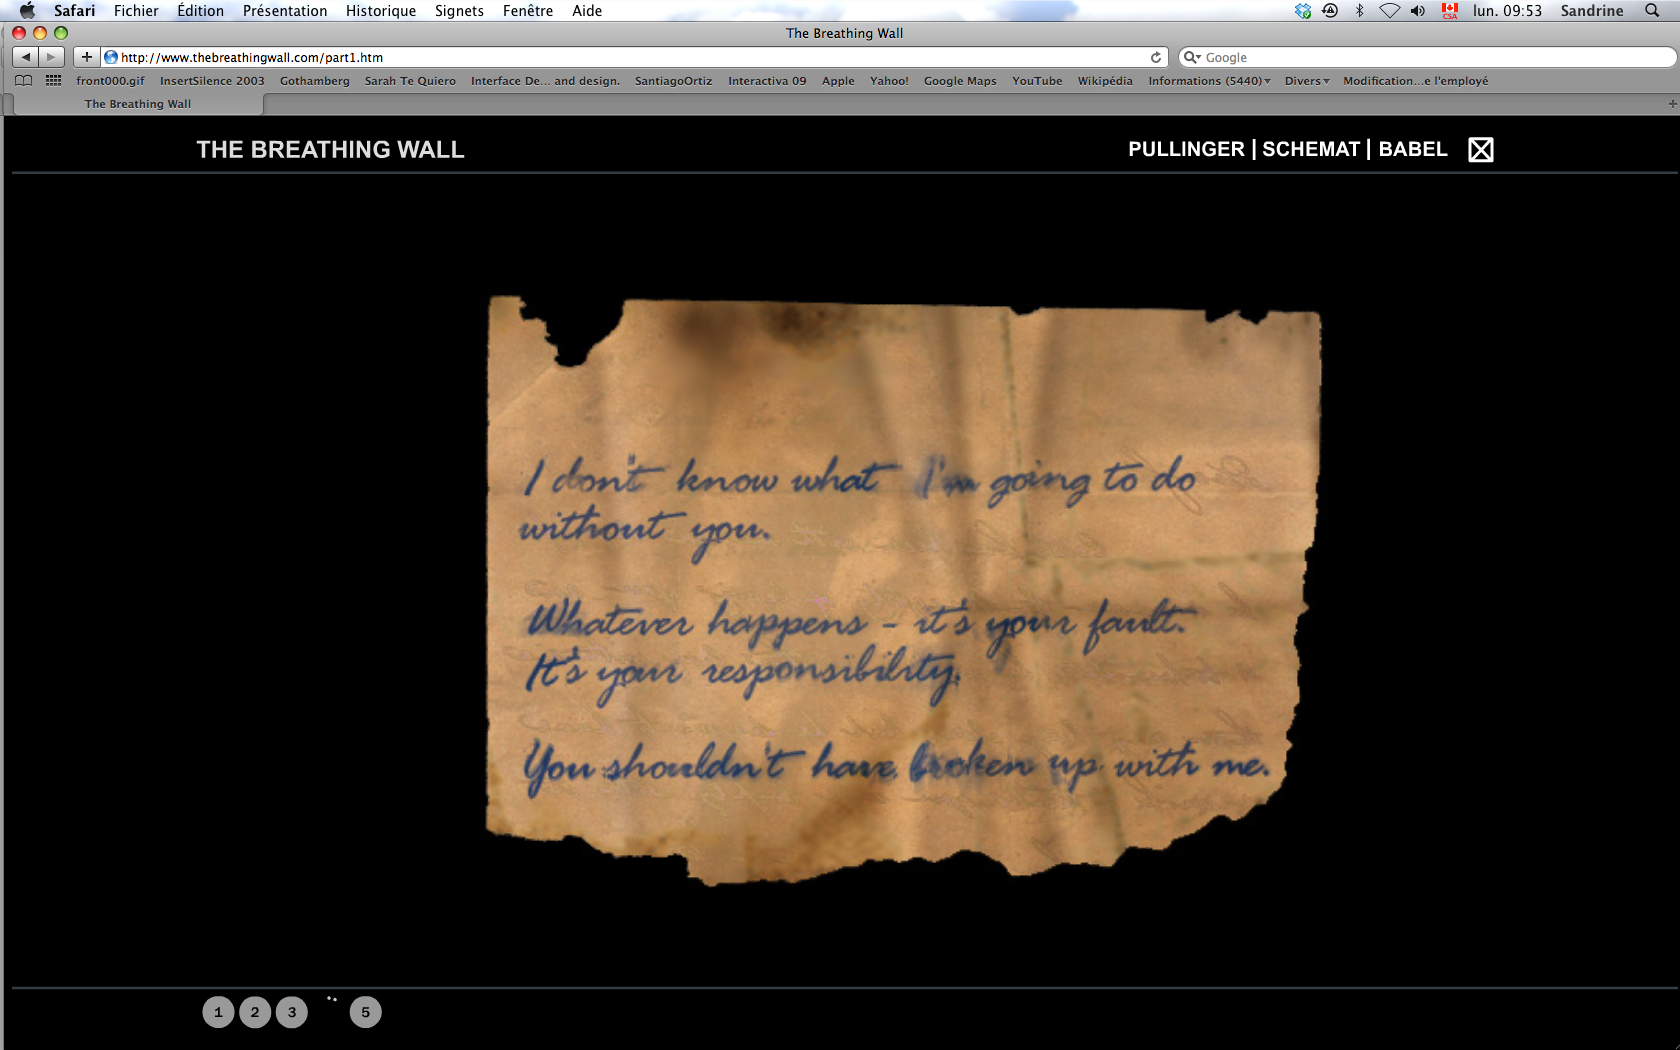 Safari Fichier Édition Présentation Historique Signets Fenêtre Aide CSA lun. 09:53 Sandrine
The Breathing Wall
http://www.thebreathingwall.com/part1.htm Google
front000.gif InsertSilence 2003 Gothamberg Sarah Te Quiero Interface De... and design. SantiagoOrtiz Interactiva 09 Apple Yahoo! Google Maps YouTube Wikipédia Informations (5440) Divers Modification...e l'employé
The Breathing Wall
THE BREATHING WALL PULLINGER | SCHEMAT | BABEL
I don't know what I'm going to do
without you.
Whatever happens - it's your fault.
It's your responsibility.
You shouldn't have broken up with me.
1 2 3 5